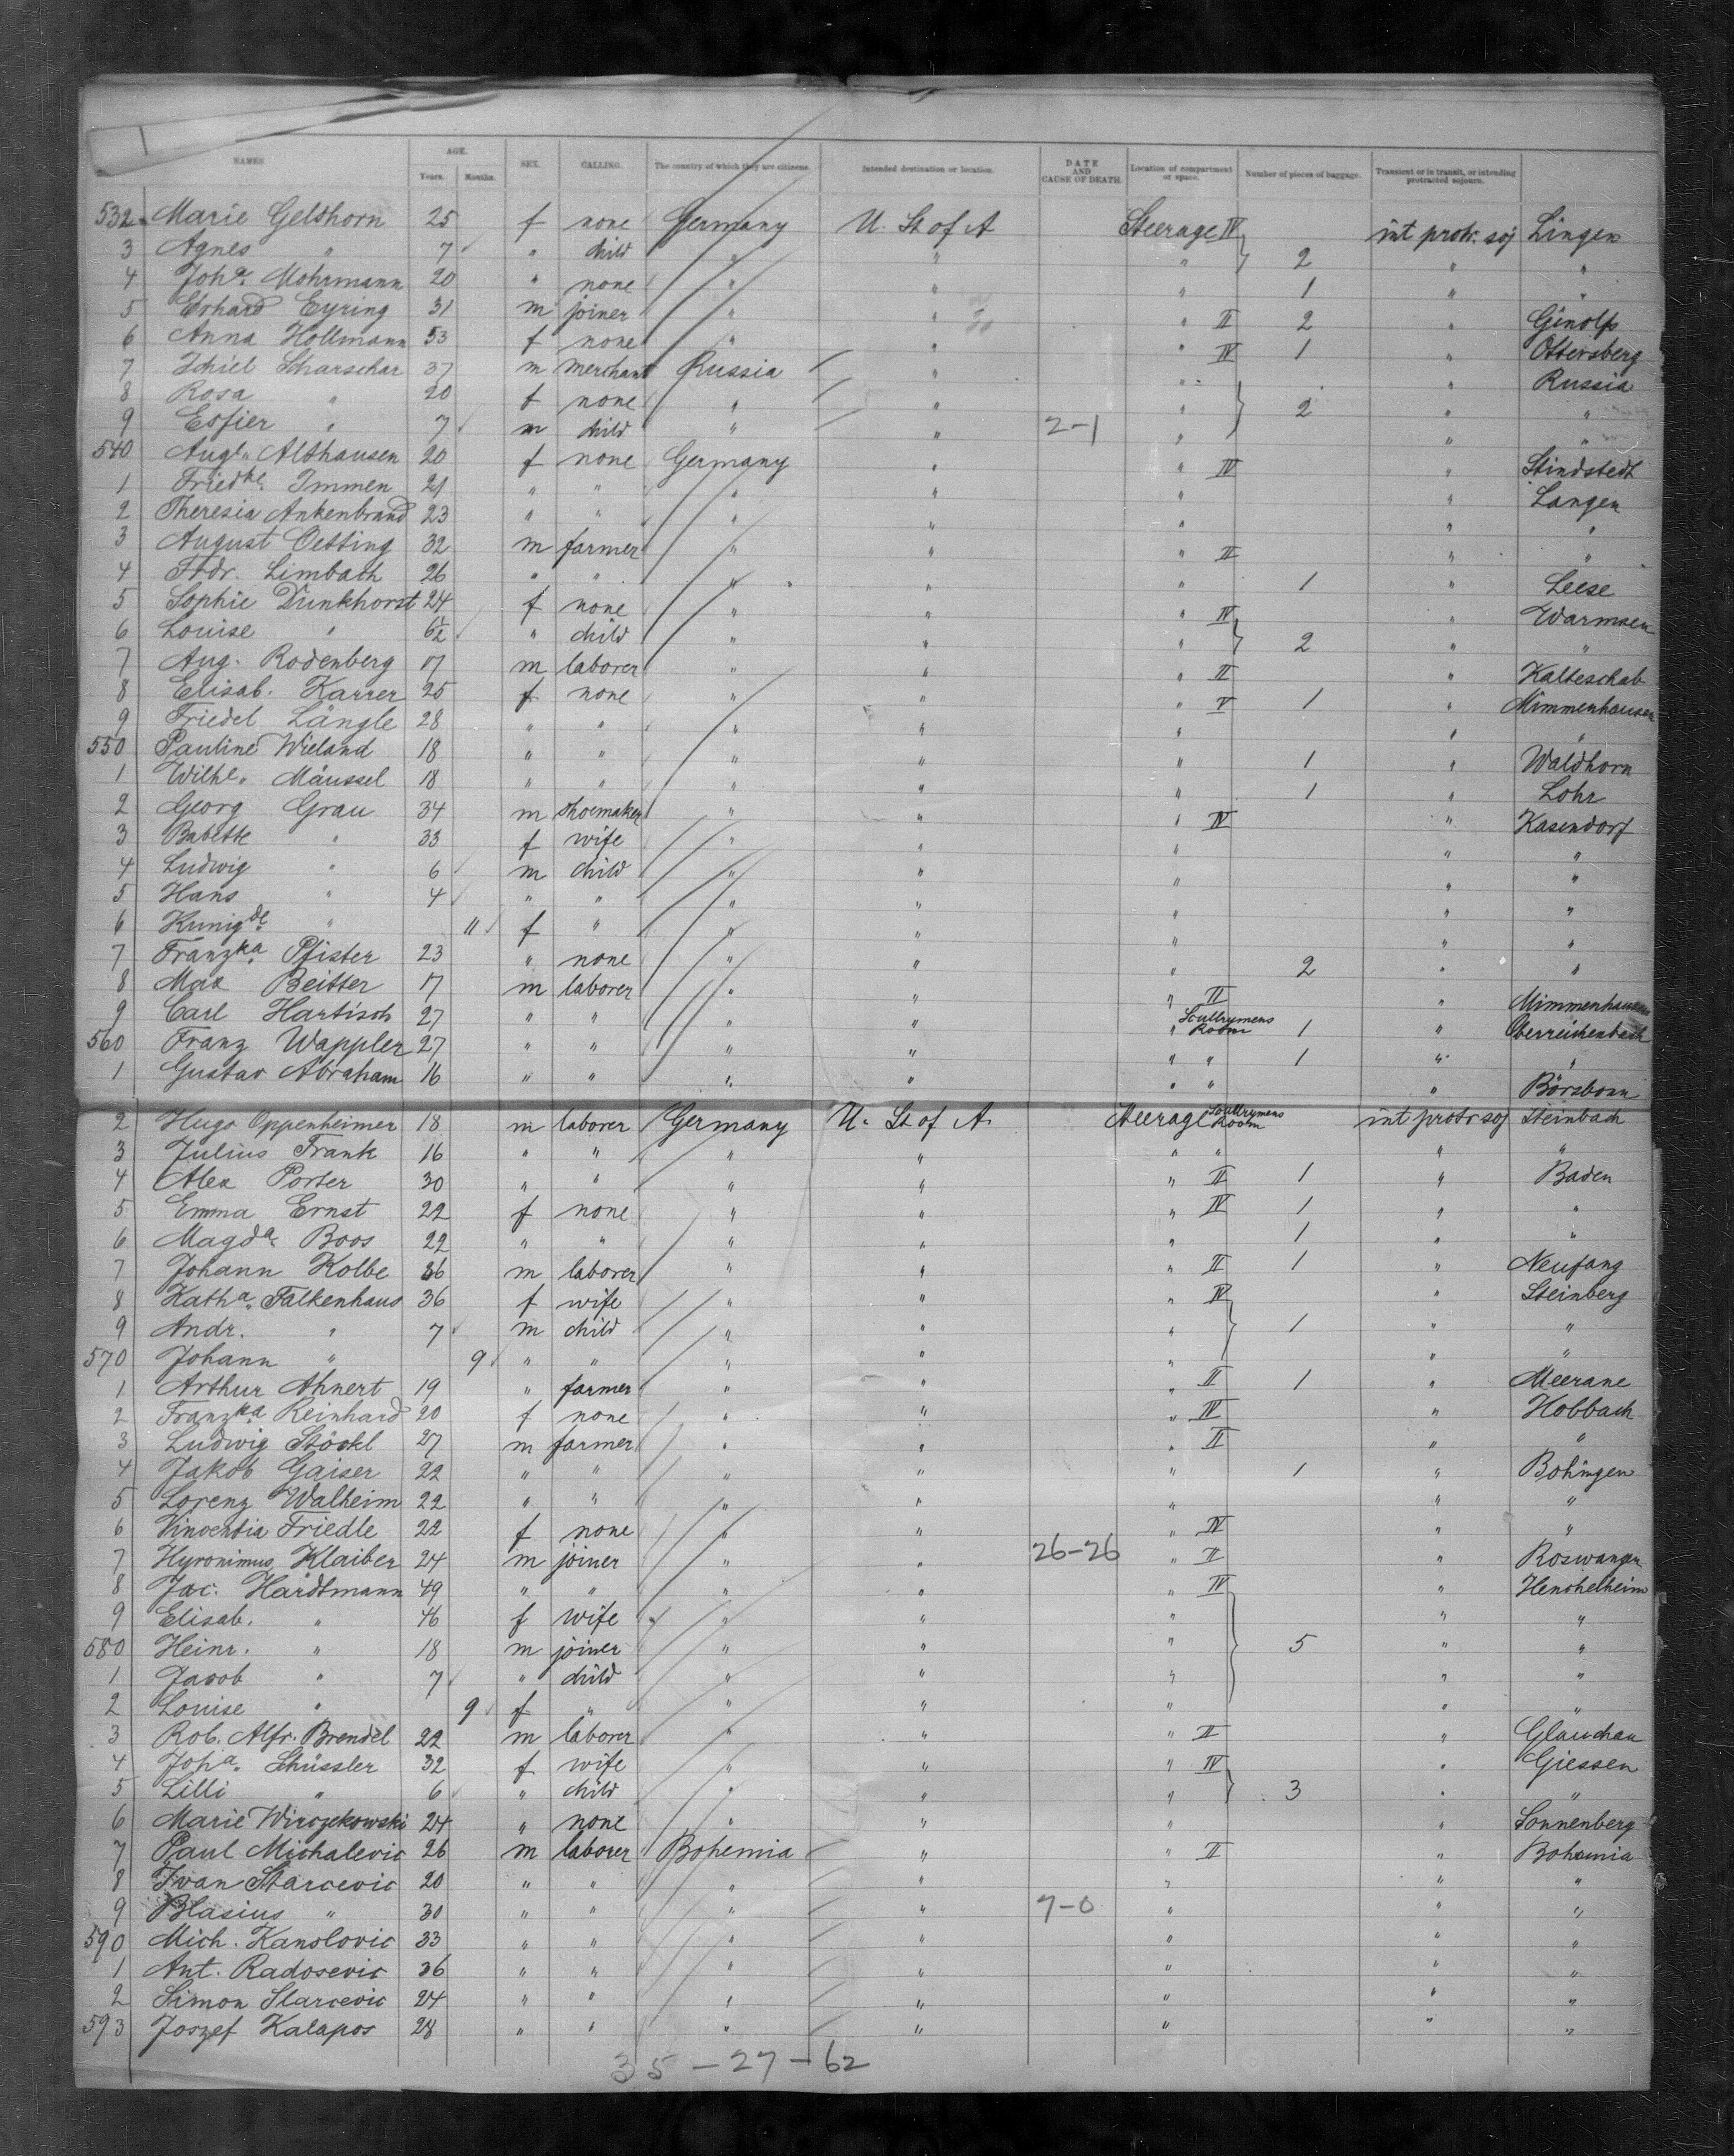 NAMES. AGE. Years. Months. SEX. CALLING. The country of which they are citizens. Intended destination or location. DATE AND CAUSE OF DEATH. Location of compartment or space. Number of pieces of baggage. Transient or in transit, or intending protracted sojourn.
532 Marie Geldhorn 25 f none Germany U. St of A Steerage IV int protr. soj Lingen
3 Agnes " 7 " child " " " 2 " "
4 Joha. Mohrmann 20 " none " " " 1 " "
5 Erhard Eyring 31 m joiner " " " II 2 " Ginolfs
6 Anna Hollmann 53 f none " " " IV 1 " Ottersberg
7 Ichiel Scharschar 37 m merchant Russia " " " Russia
8 Rosa " 20 f none " " " 2 " "
9 Esfier " 7 m child " " 2-1 " " "
540 Augte Althausen 20 f none Germany " " IV " Stindstedt
1 Friedke. Immen 21 " " " " " " Langen
2 Theresia Ankenbrand 23 " " " " " " "
3 August Oetting 32 m farmer " " " II " "
4 Frdr. Limbach 26 " " " " " 1 " Leese
5 Sophie Dunkhorst 24 f none " " " IV " Warmsen
6 Louise " 6½ " child " " " 2 " "
7 Aug. Rodenberg 17 m laborer " " " II " Kalteschab
8 Elisab. Karrer 25 f none " " " V 1 " Mimmenhausen
9 Friedel Längle 28 " " " " " " "
550 Pauline Wieland 18 " " " " " 1 " Waldhorn
1 Wilhe. Mäussel 18 " " " " " 1 " Lohr
2 Georg Grau 34 m shoemaker " " " IV " Kasendorf
3 Babette " 33 f wife " " " " "
4 Ludwig " 6 m child " " " " "
5 Hans " 4 " " " " " " "
6 Kunigde. " 11 f " " " " " "
7 Franzka. Pfister 23 " none " " " 2 " "
8 Max Beitter 17 m laborer " " " II " Mimmenhausen
9 Carl Hartisch 27 " " " " " Scullrymens Room 1 " Oberreichenbach
560 Franz Wappler 27 " " " " " " 1 " "
1 Gustav Abraham 16 " " " " " " " Börsborn
2 Hugo Oppenheimer 18 m laborer Germany U. St of A. Steerage Scullrymens Room int protr soj Steinbach
3 Julius Frank 16 " " " " " " " "
4 Alex Porter 30 " " " " " II 1 " Baden
5 Emma Ernst 22 f none " " " IV 1 " "
6 Magda. Boos 22 " " " " " 1 " "
7 Johann Kolbe 36 m laborer " " " II 1 " Neufang
8 Katha. Falkenhaus 36 f wife " " " IV " Steinberg
9 Andr. " 7 m child " " " 1 " "
570 Johann " 9 " " " " " " "
1 Arthur Ahnert 19 " farmer " " " II 1 " Meerane
2 Franzka. Reinhard 20 f none " " " IV " Hobbach
3 Ludwig Stöckl 27 m farmer " " " II " "
4 Jakob Gaiser 22 " " " " " 1 " Bohingen
5 Lorenz Walheim 22 " " " " " " "
6 Vincentia Friedle 22 f none " " " IV " "
7 Hyronimus Klaiber 24 m joiner " " 26-26 " II " Roswangen
8 Jac. Hardtmann 49 " " " " " IV " Henchelheim
9 Elisab. " 46 f wife " " " " "
580 Heinr. " 18 m joiner " " " 5 " "
1 Jacob " 7 " child " " " " "
2 Louise " 9 f " " " " " "
3 Rob. Alfr. Brendel 22 m laborer " " " II " Glauchau
4 Joha. Schüssler 32 f wife " " " IV " Giessen
5 Lilli " 6 " child " " " 3 " "
6 Marie Wirczekowski 24 " none " " " " Sonnenberg
7 Paul Michalevic 26 m laborer Bohemia " " II " Bohemia
8 Ivan Starcevic 20 " " " " " " "
9 Blasius " 30 " " " " 7-0 " " "
590 Mich. Kanslovic 33 " " " " " " "
1 Ant. Radosevic 36 " " " " " " "
2 Simon Starcevic 24 " " " " " " "
593 Joszef Kalapos 28 " " " " " " "
35-27-62